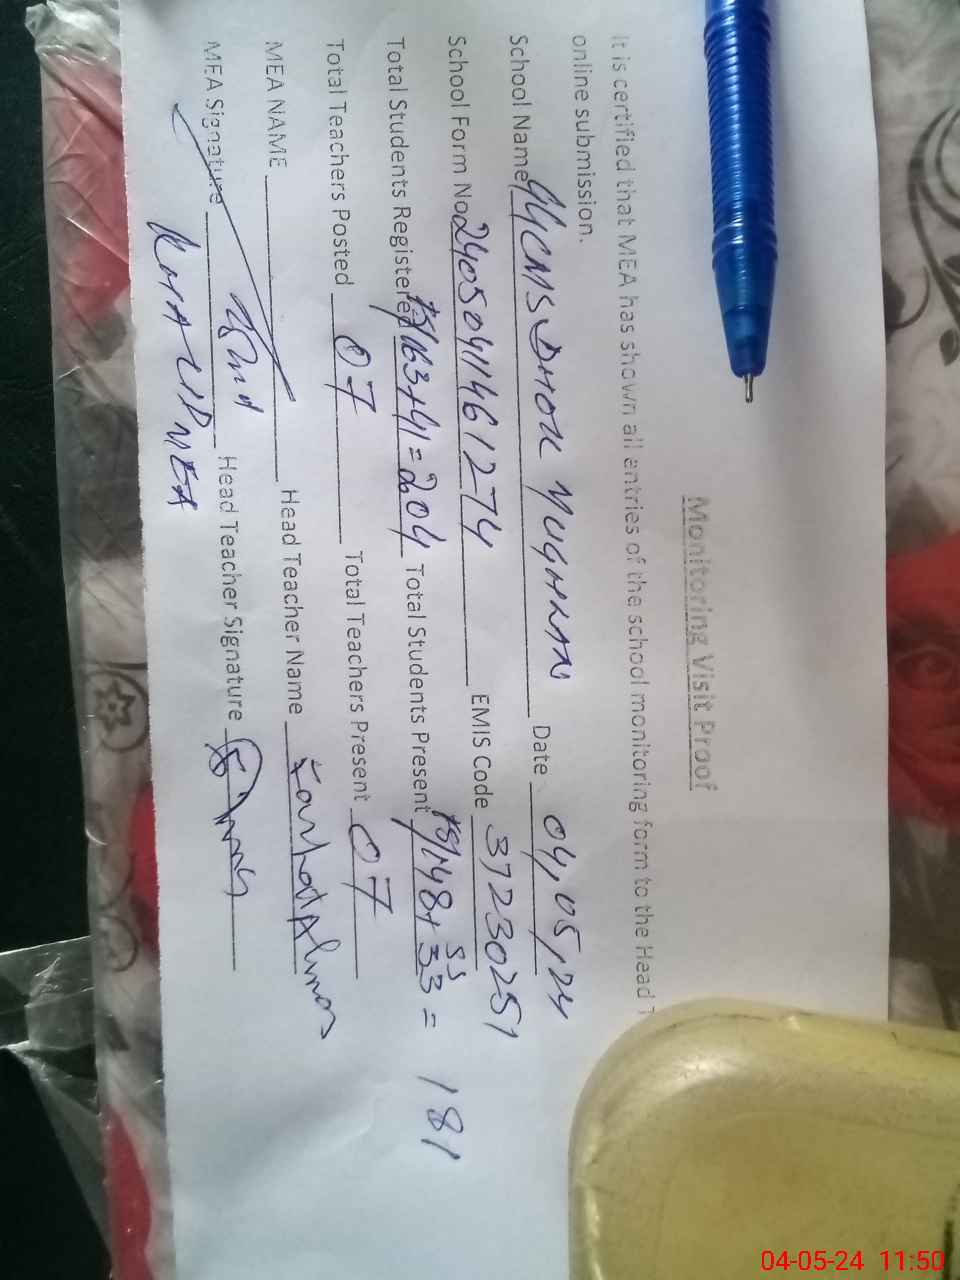 Monitoring Visit Proof
It is certified that MEA has shown all entries of the school monitoring form to the Head T
online submission.
School Name GGCMS DHOK Date 04,05,24
School Form No 24050411461274 EMIS Code 37230251
Total Students Registered 163+41=204 Total Students Present 148+33 = 181
33
Total Teachers Posted 07 Total Teachers Present 07
MEA NAME Head Teacher Name
MEA Signature Head Teacher Signature
MEA
04-05-24 11:50